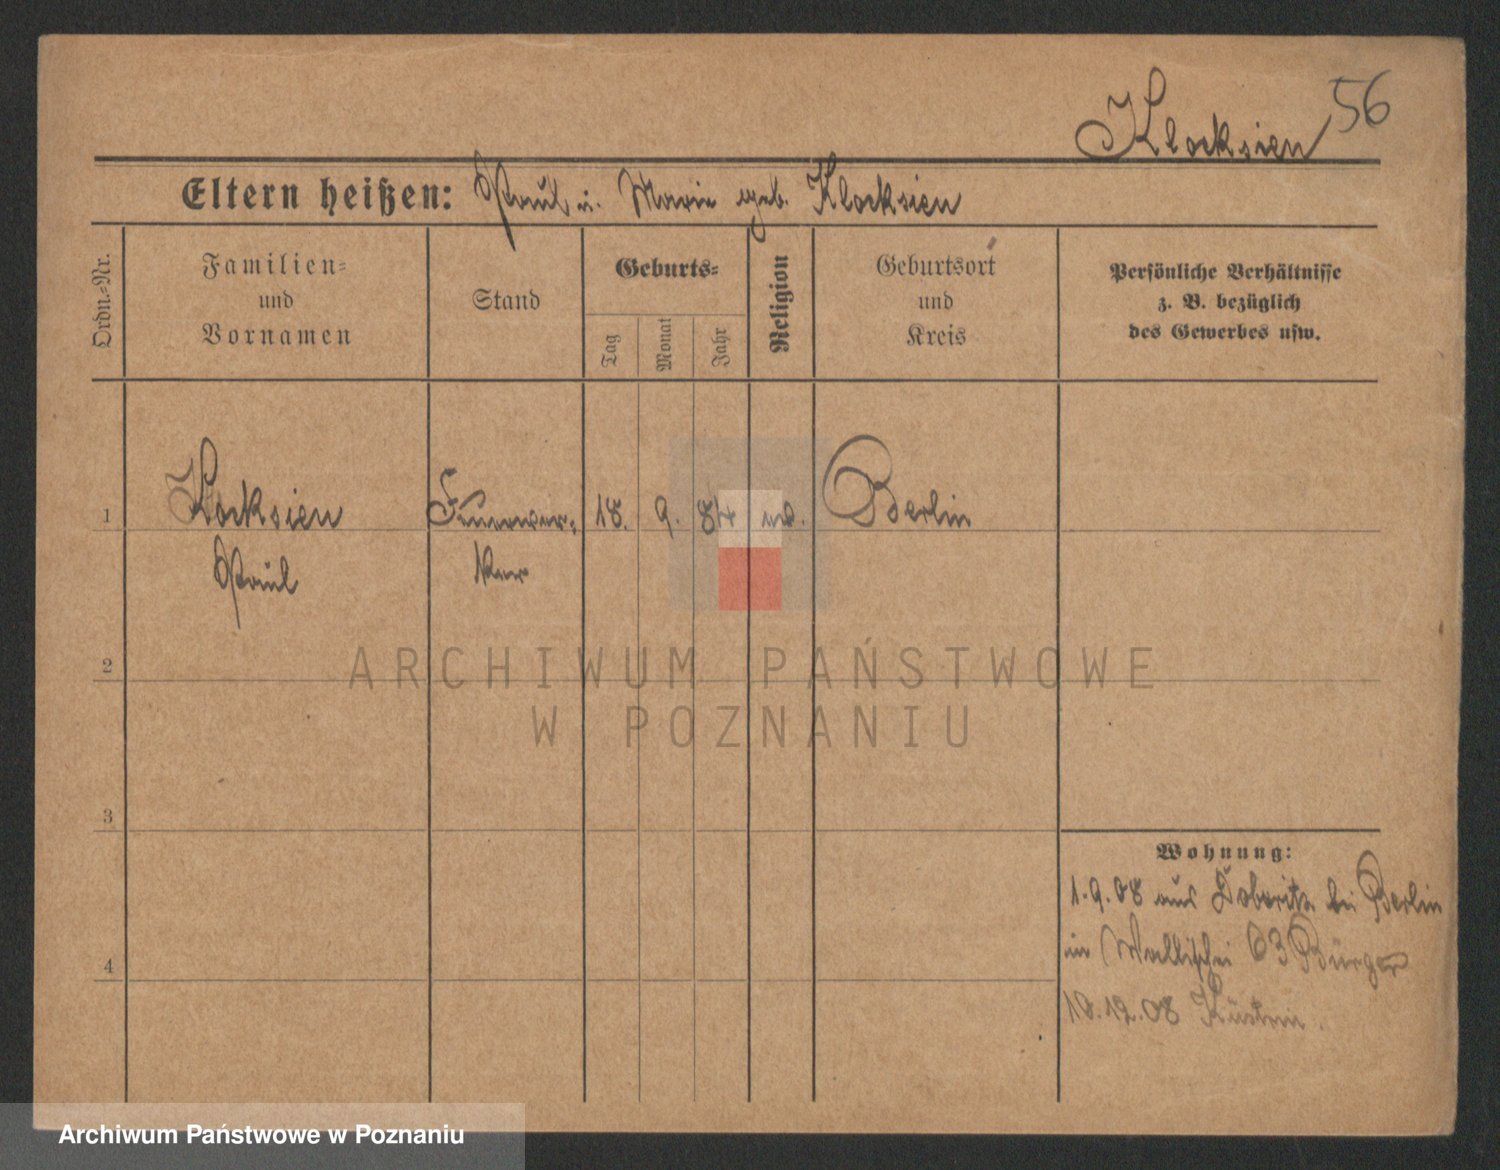 Klocksien 56
Eltern heißen: Paul u. Marie geb. Klocksien
Ordn.-Nr.
Familien-
und
Vornamen
Stand
Geburts-
Tag
Monat
Jahr
Religion
Geburtsort
und
Kreis
Persönliche Verhältnisse
z. B. bezüglich
des Gewerbes usw.
1 Klocksien Feuerwer- 18. 9. 84 ev. Berlin
Paul ker
ARCHIWUM PAŃSTWOWE
2
W POZNANIU
3
Wohnung:
1.9.08 aus Döberitz bei Berlin
in Wallischei 63 Bürger
4
10.12.08 Küstrin.
Archiwum Państwowe w Poznaniu